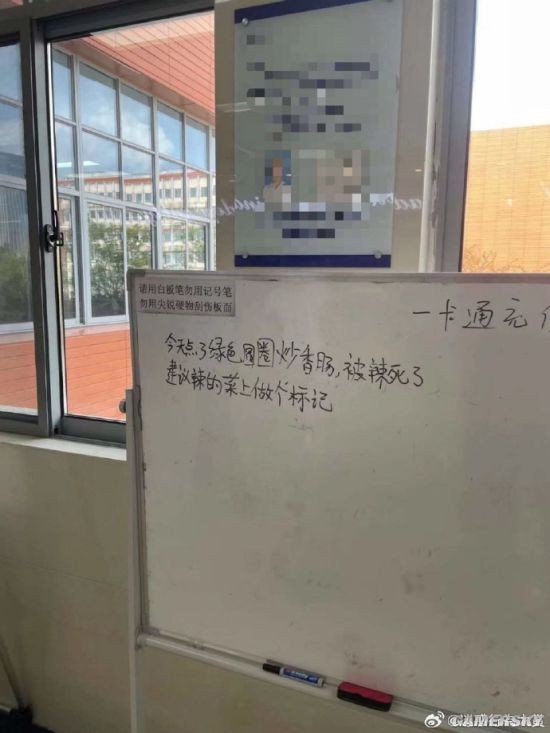 请用白板笔勿用记号笔
勿用尖锐硬物刮伤板面
一卡通充
今天点了绿色圈圈炒香肠,被辣死了
建议辣的菜上做个标记